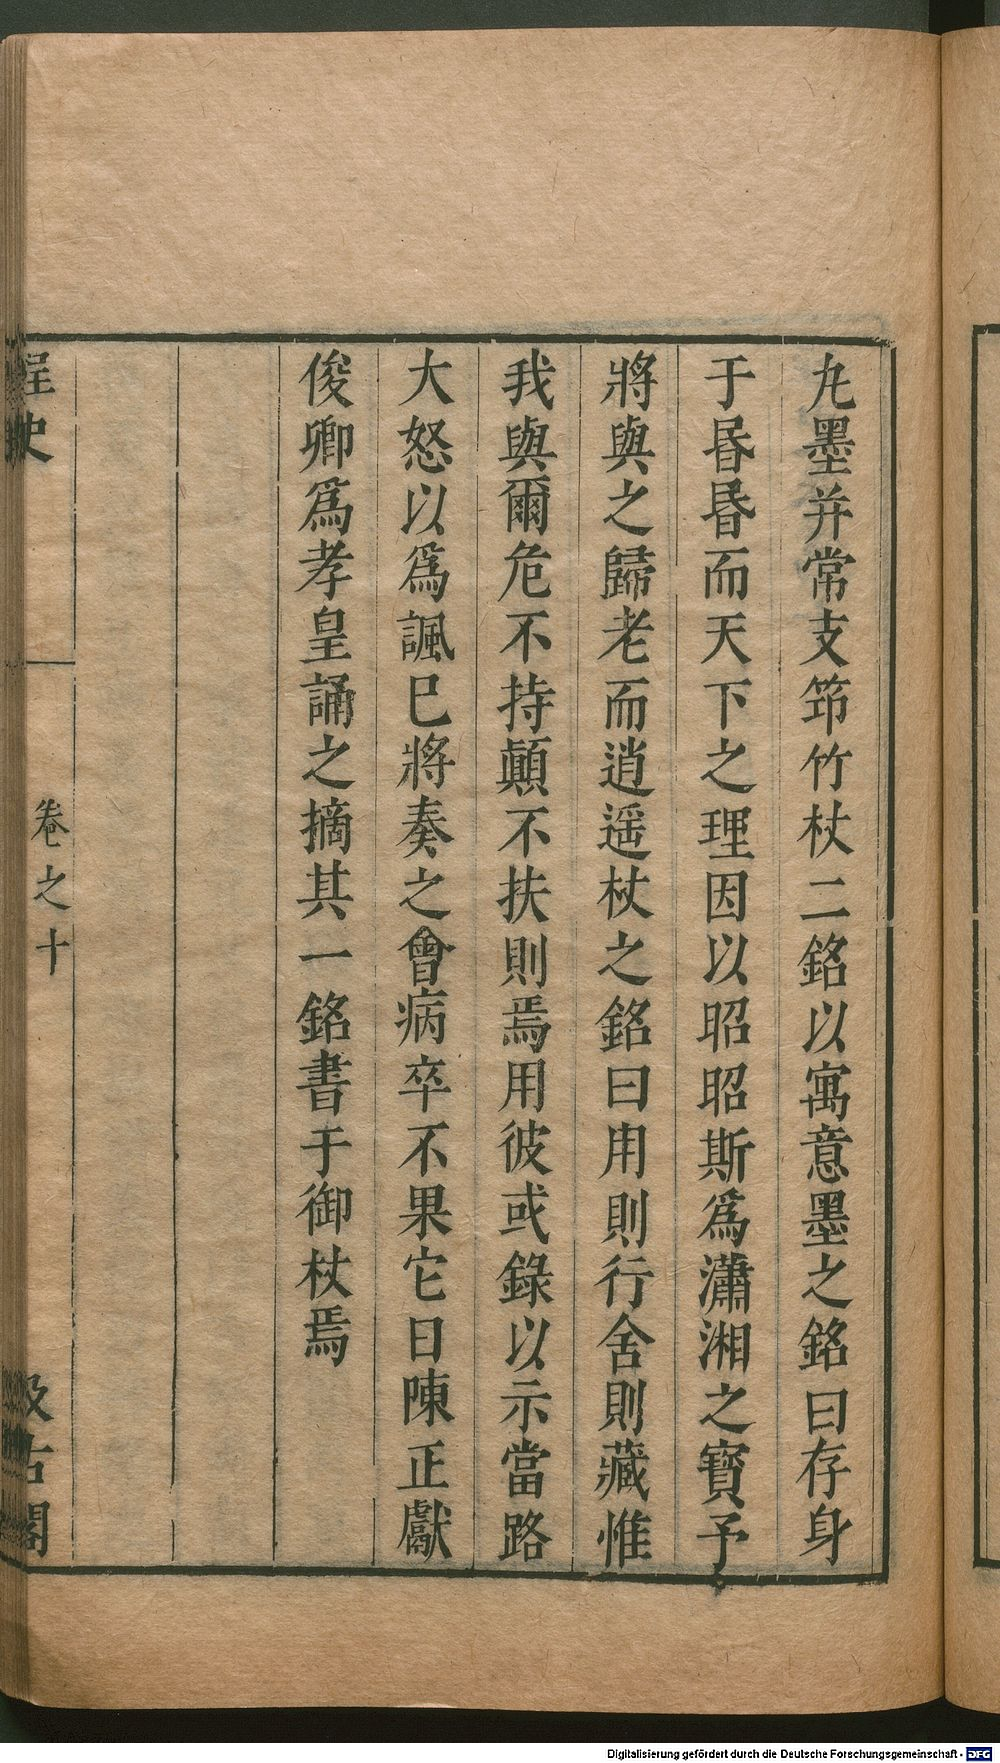 九墨并常支筇竹杖二銘以寓意墨之銘曰存身
于昬昬而天下之理因以昭昭斯爲瀟湘之寶予
將與之歸老而逍遥杖之銘曰用則行舍則藏惟
我與爾危不持顛不扶則焉用彼或錄以示當路
大怒以爲諷巳將奏之會病卒不果它日陳正獻
俊卿爲孝皇誦之摘其一銘書于御杖焉
桯史
卷之十
汲古閣
Digitalisierung gefördert durch die Deutsche Forschungsgemeinschaft - DFG